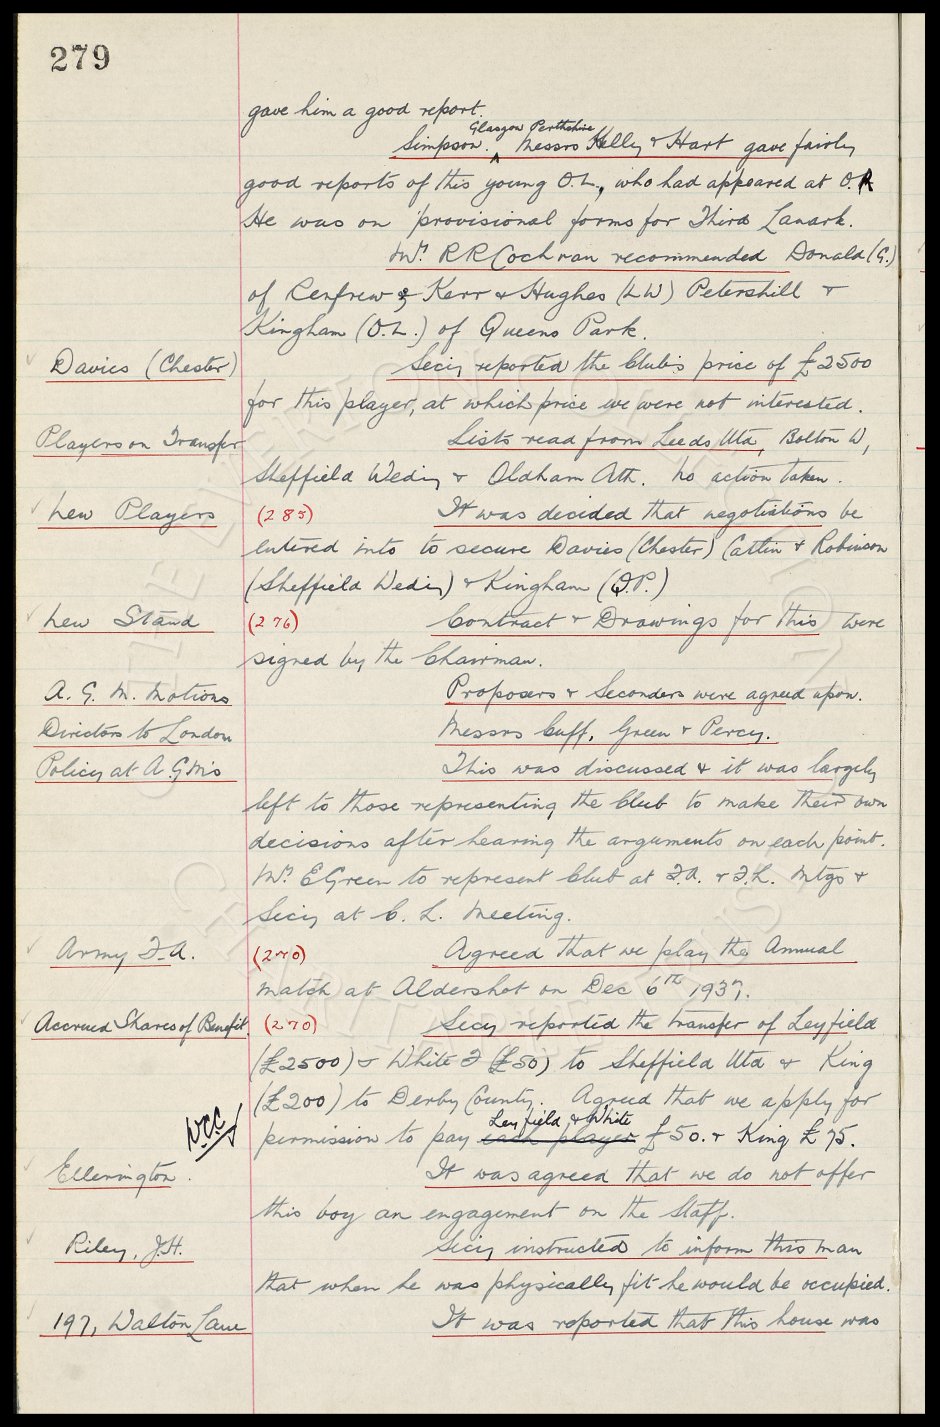 279
gave him a good report.
Glasgow Perthshire
Simpson. ^ Messrs Kelly & Hart gave fairly
good reports of this young O.L., who had appeared at O.R
He was on provisional forms for Third Lanark.
Mr. R R Cochran recommended Donald (G.)
of Renfrew & Kerr & Hughes (LW) Petershill &
Kingham (O.L.) of Queens Park.
Davies (Chester) Secy reported the Club's price of £2500
for this player, at which price we were not interested.
Players on Transfer Lists read from Leeds Utd, Bolton W,
Sheffield Wedy & Oldham Ath. No action taken.
New Players (285) It was decided that negotiations be
entered into to secure Davies (Chester) Catlin & Robinson
(Sheffield Wedy) & Kingham (Q.P.)
New Stand (276) Contract & Drawings for this were
signed by the Chairman.
A. G. M. Motions Proposers & Seconders were agreed upon.
Directors to London Messrs Cuff, Green & Percy.
Policy at A.G.M's This was discussed & it was largely
left to those representing the Club to make their own
decisions after hearing the arguments on each point.
Mr. E Green to represent Club at F.A. & F.L. Mtgs &
Secy at C. L. Meeting.
Army F.A. (270) Agreed that we play the Annual
match at Aldershot on Dec 6th 1937.
Accrued Shares of Benefit. (270) Secy reported the transfer of Leyfield
(£2500) & White T (£50) to Sheffield Utd & King
(£200) to Derby County. Agreed that we apply for
Leyfield & White
permission to pay each player £50. & King £75.
W.C.C.
Ellerington. It was agreed that we do not offer
this boy an engagement on the Staff.
Riley, J.H. Secy instructed to inform this man
that when he was physically fit he would be occupied.
197, Walton Lane It was reported that this house was